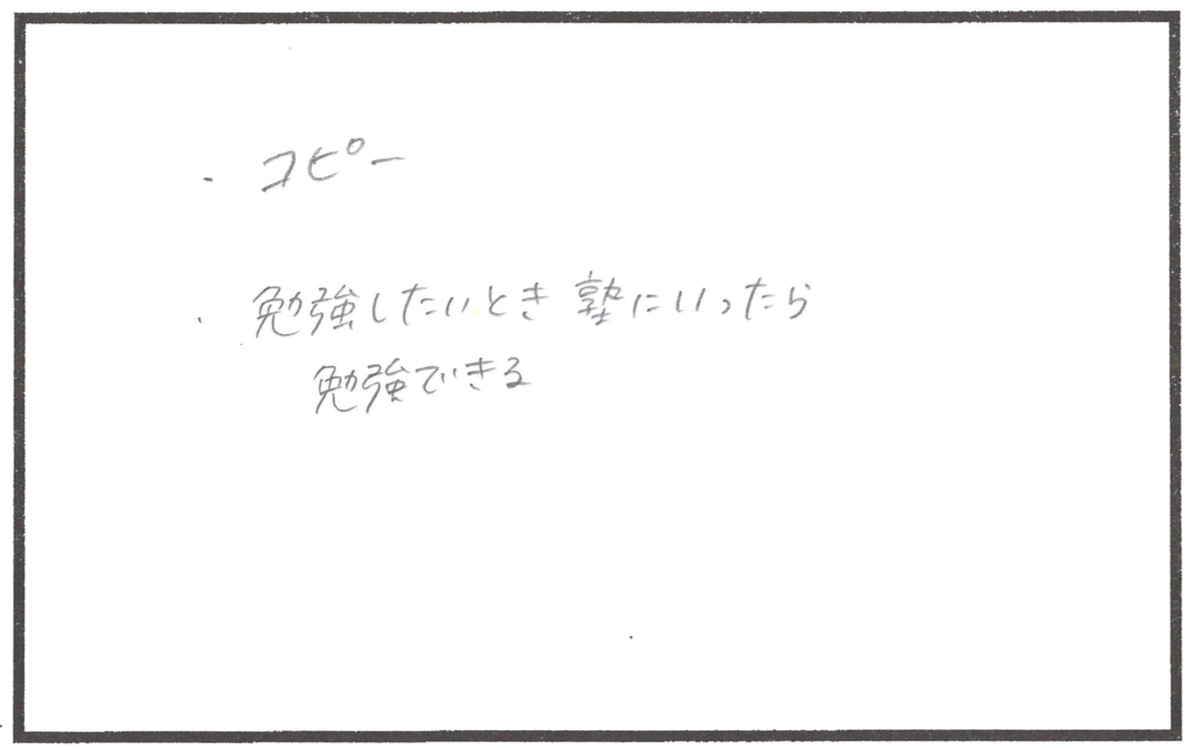 ・コピー
・勉強したいとき塾にいったら
勉強できる